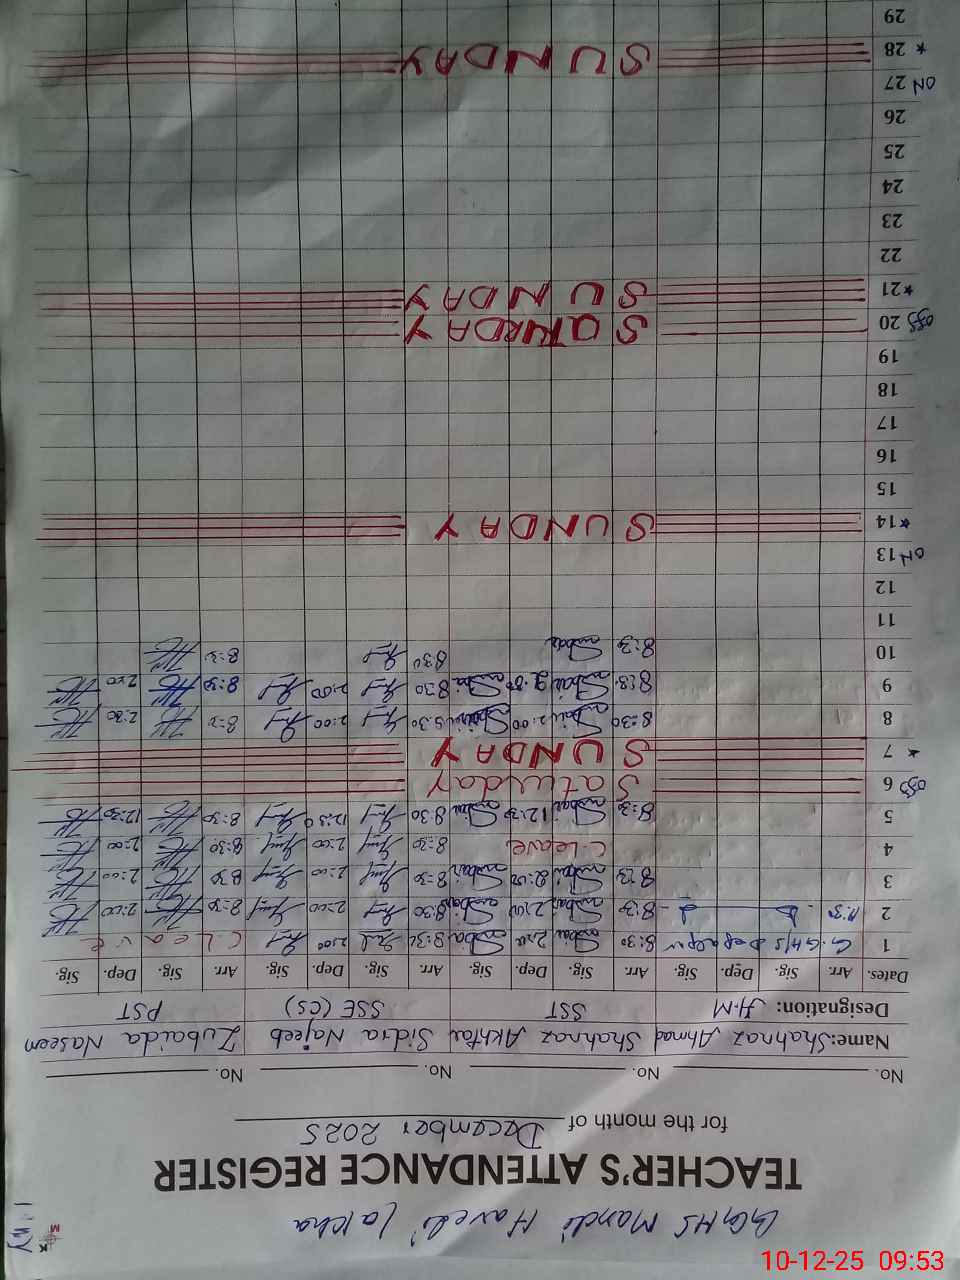 GGHS Mandi Haveli Lakha
TEACHER'S ATTENDANCE REGISTER
for the month of December 2025
No. No. No. No.
Name: Shahnaz Ahmad Shahnaz Akhtar Sidra Najeeb Zubaida Naseem
Designation: H.M SST SSE (CS) PST
Dates. Arr. Sig. Dep. Sig. Arr. Sig. Dep. Sig. Arr. Sig. Dep. Sig. Arr. Sig. Dep. Sig.
1 8:30 2:00 8:30 2:00 C. Leave
2 8:30 2:00 8:30 2:00 8:30 2:00
3 8:30 2:00 8:30 2:00 8:30 2:00
4 C. Leave 8:30 2:00 8:30 2:00
5 8:30 12:30 8:30 12:30 8:30 12:30
off 6 Saturday
* 7 SUNDAY
8 8:30 2:00 8:30 2:00 8:30 2:30
9 8:30 2:00 8:30 2:00 8:30 2:00
10 8:30 8:30 8:30
11
12
ON 13
* 14 SUNDAY
15
16
17
18
19
off 20 SATURDAY
* 21 SUNDAY
22
23
24
25
26
ON 27
* 28 SUNDAY
29
10-12-25 09:53